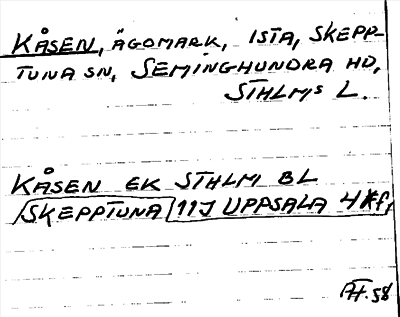 KÅSEN, ÄGOMARK, ISTA, SKEPP-
TUNA SN, SEMINGHUNDRA HD,
STHLMS L.
KÅSEN EK STHLM BL
SKEPPTUNA 11J UPPSALA 4